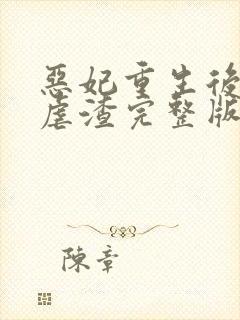 惡妃重生後
虐渣完整版
陳章